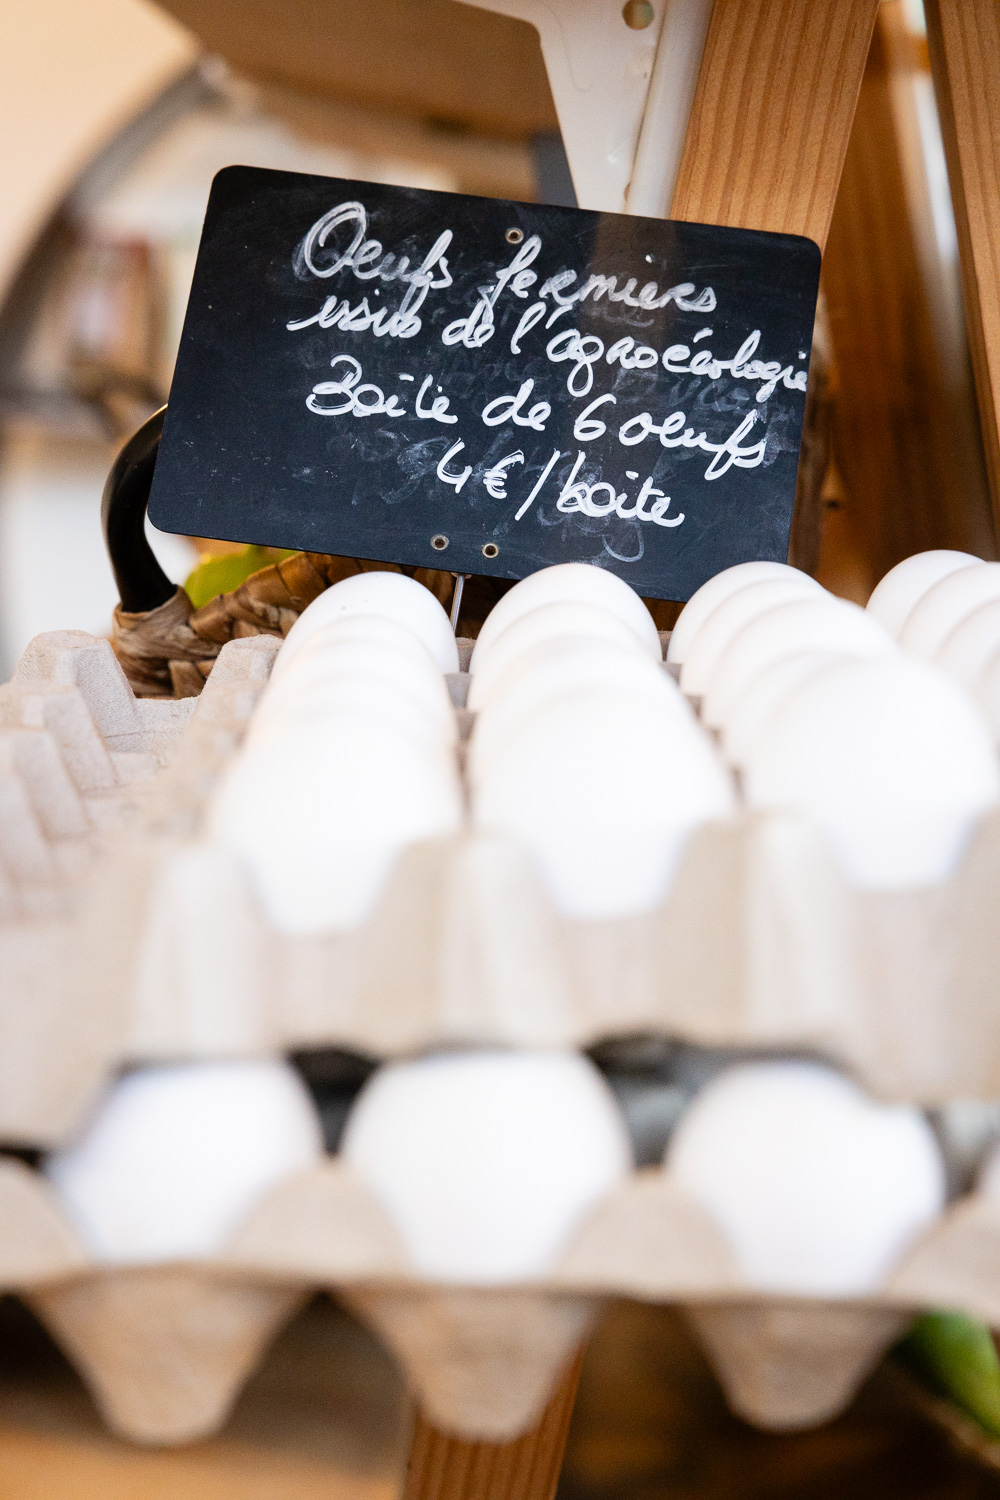 Oeufs fermiers
issus de l'agroécologie
Boîte de 6 oeufs
4€/boite